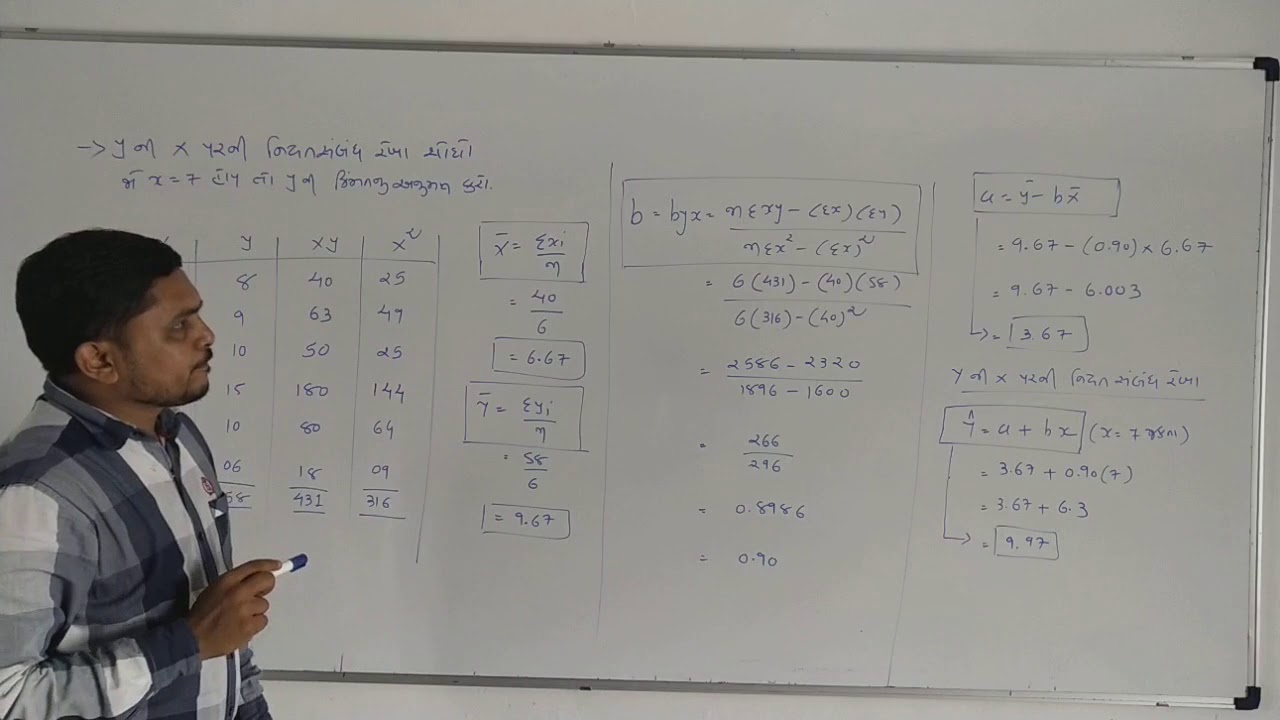 → y ની x પરની નિયતસંબંધ રેખા શોધો
જો x = 7 હોય તો y ની કિંમતનું અનુમાન કરો.
y xy x²
8 40 25
9 63 49
10 50 25
15 180 144
10 80 64
06 18 09
58 431 316
x̄ = Σxi / n
= 40 / 6
= 6.67
ȳ = Σyi / n
= 58 / 6
= 9.67
b = byx = nΣxy - (Σx)(Σy) / nΣx² - (Σx)²
= 6(431) - (40)(58) / 6(316) - (40)²
= 2586 - 2320 / 1896 - 1600
= 266 / 296
= 0.8986
= 0.90
a = ȳ - bx̄
= 9.67 - (0.90) × 6.67
= 9.67 - 6.003
→ = 3.67
y ની x પરની નિયત સંબંધ રેખા
ŷ = a + bx (x = 7 મૂકતા)
= 3.67 + 0.90(7)
= 3.67 + 6.3
→ = 9.97